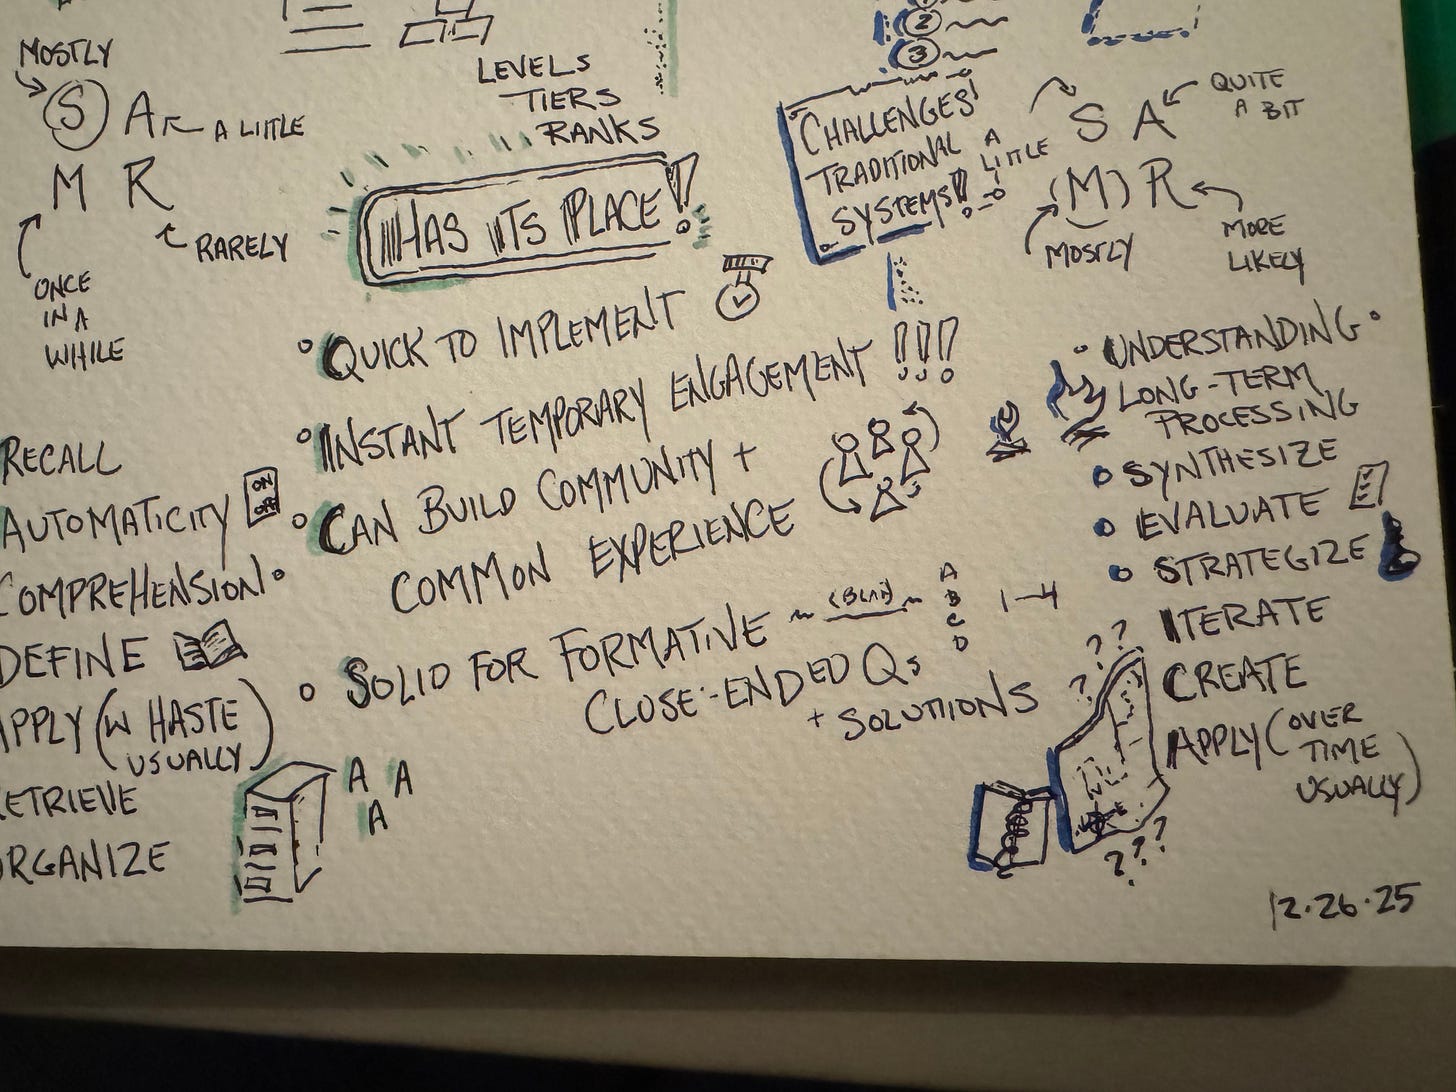 MOSTLY
S A A LITTLE
M R
RARELY
ONCE
IN A
WHILE
RECALL
AUTOMATICITY
ON
OFF
COMPREHENSION
DEFINE
APPLY (W HASTE
USUALLY)
RETRIEVE
ORGANIZE
A A
A
LEVELS
TIERS
RANKS
HAS ITS PLACE!
QUICK TO IMPLEMENT
INSTANT TEMPORARY ENGAGEMENT !!!
CAN BUILD COMMUNITY +
COMMON EXPERIENCE
SOLID FOR FORMATIVE
A
B
C
D
1-4
CLOSE-ENDED Qs
+ SOLUTIONS
2
3
CHALLENGES!
TRADITIONAL
SYSTEMS!!
A
LITTLE
S A
QUITE
A BIT
(M) R
MOSTLY
MORE
LIKELY
UNDERSTANDING
LONG-TERM
PROCESSING
SYNTHESIZE
EVALUATE
STRATEGIZE
ITERATE
CREATE
APPLY (OVER
TIME
USUALLY)
? ?
?
? ? ?
12.26.25